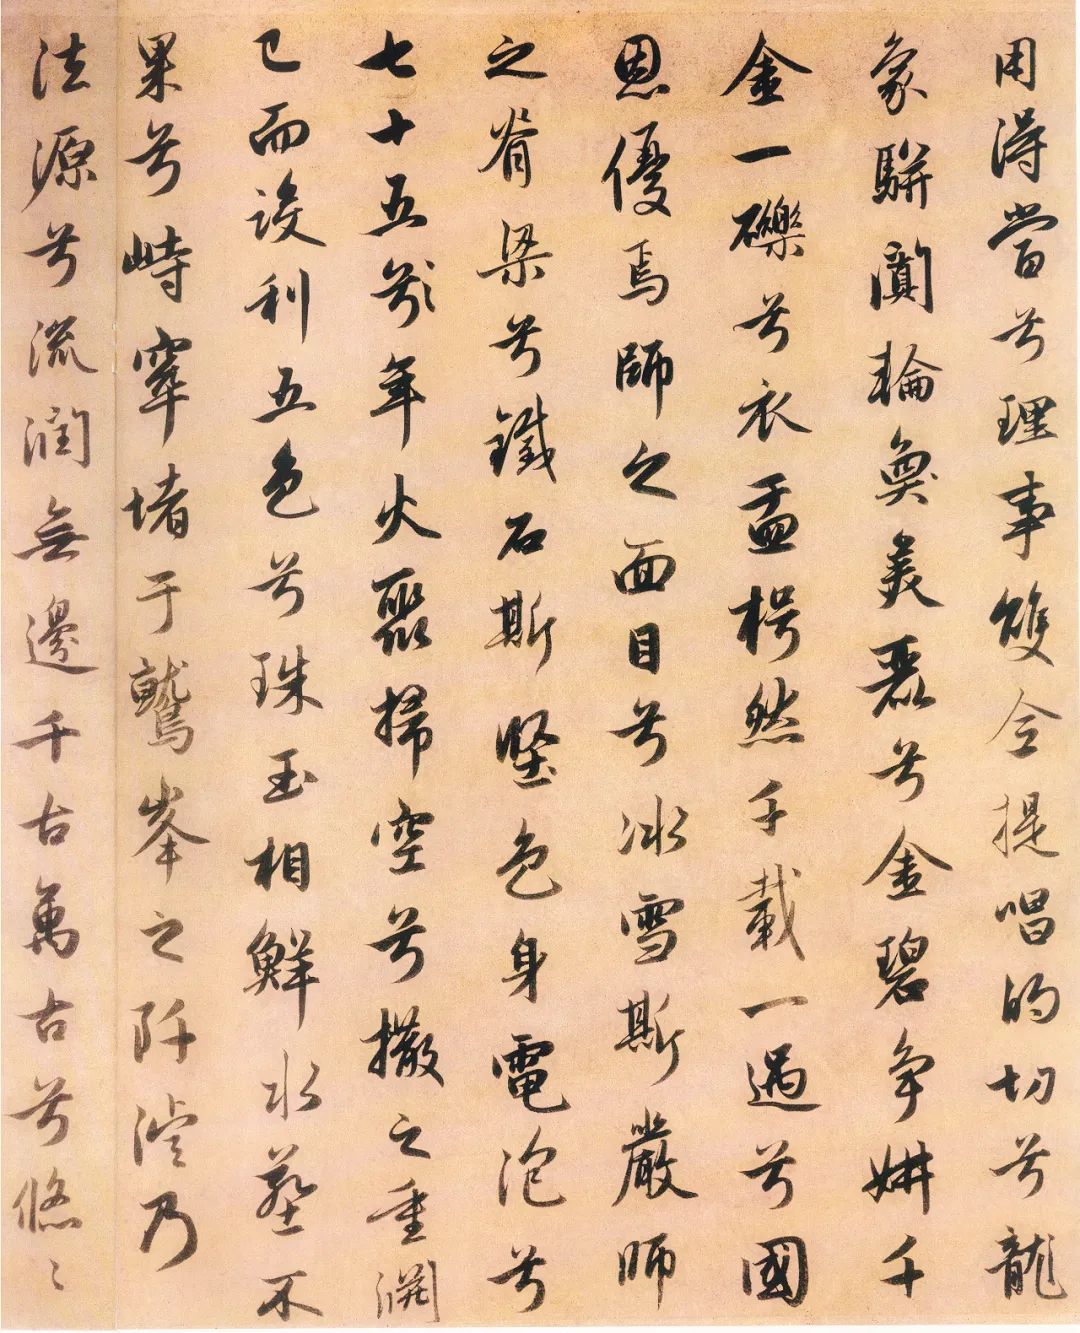 用得當兮理事雙全提唱的切兮龍
象駢闐輪奐美麗兮金碧爭妍千
金一礫兮衣盂枵然千載一遇兮國
恩優焉師之面目兮冰雪斯嚴師
之脊梁兮鐵石斯堅色身電泡兮
七十五歲年火聚掃空兮撒之重淵
已而設利五色兮珠玉相鮮水葬不
果兮峙窣堵于鷲峯之阡乃
法源兮流潤無邊千古萬古兮悠〻